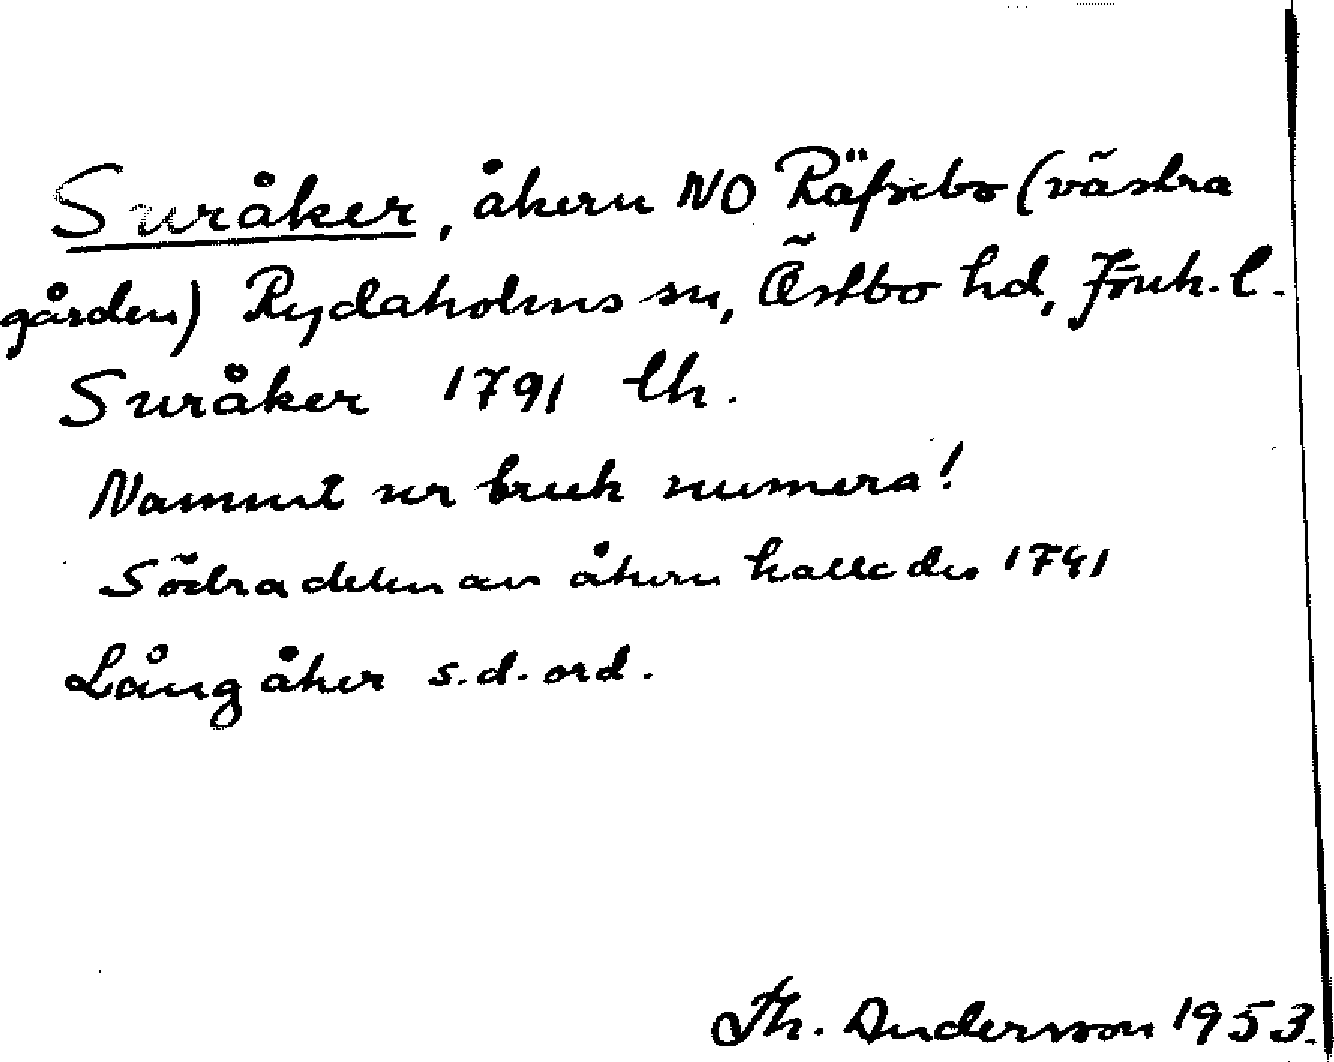 Suråker, åkern NO Räfsebo (västra
gården) Rydaholms sn, Östbo hd, Jönk. l.
Suråker 1791 lh.
Namnet ur bruk numera!
Södra delen av åkern kallades 1791
Långåker s.d. ord.
Th. Andersson 1953.